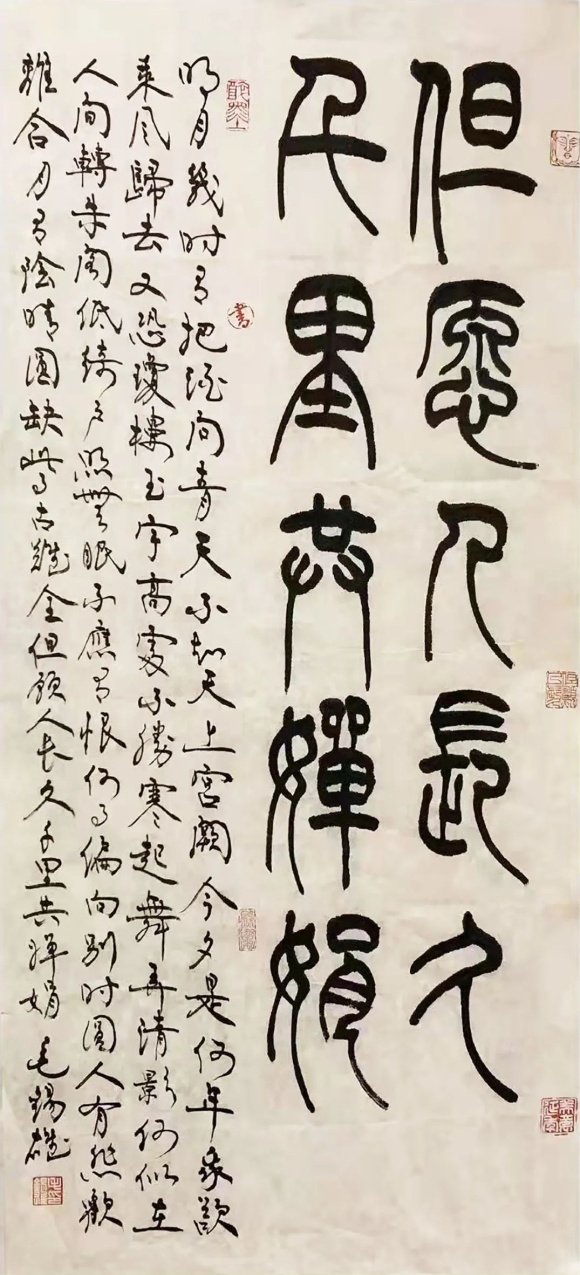 但愿人長久
千里共嬋娟
明月幾时有把酒问青天不知天上宫闕今夕是何年我欲
乘风歸去又恐瓊樓玉宇高處不勝寒起舞弄清影何似在
人间轉朱阁低绮户照無眠不應有恨何事偏向别时圆人有悲歡
離合月有陰晴圆缺此事古難全但願人长久千里共嬋娟 毛錫雄